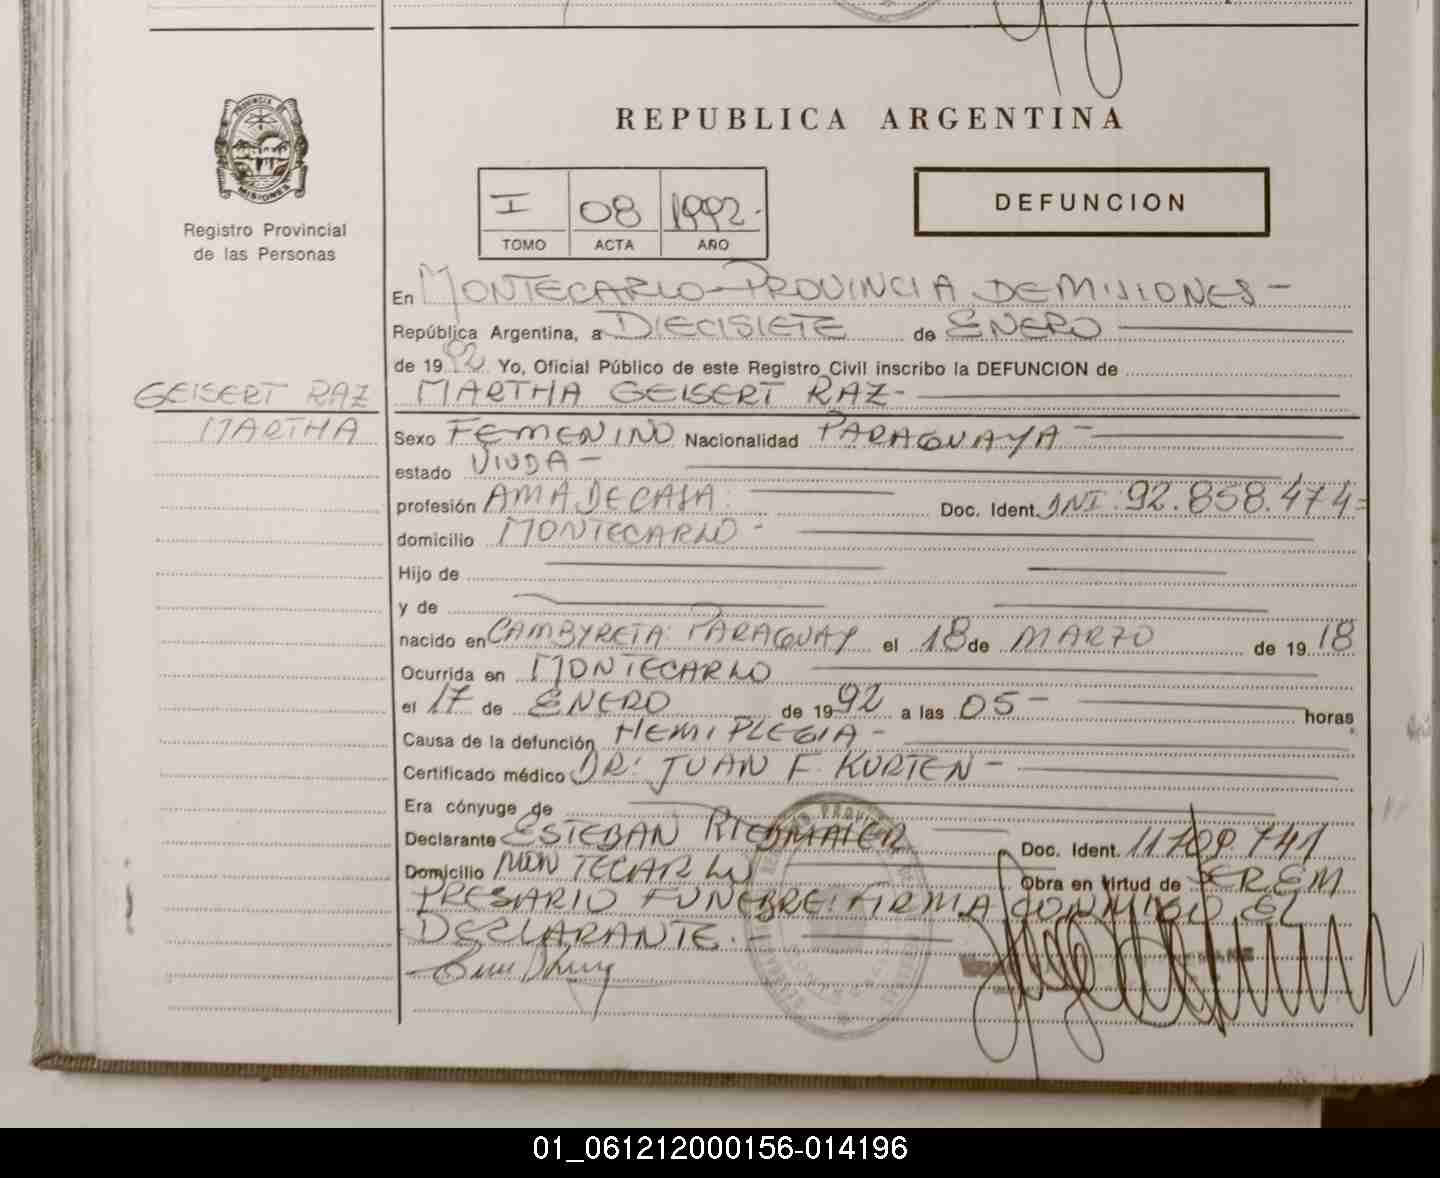 REPUBLICA ARGENTINA
PROVINCIA DE
MISIONES
Registro Provincial
de las Personas
I 08 1992.
TOMO ACTA AÑO
DEFUNCION
En MONTECARLO - PROVINCIA DE MISIONES -
República Argentina, a DIECISIETE de ENERO
de 1992 Yo, Oficial Público de este Registro Civil inscribo la DEFUNCION de
GEISERT RAZ
MARTHA
MARTHA GEISERT RAZ-
Sexo FEMENINO Nacionalidad PARAGUAYA -
estado VIUDA -
profesión AMA DE CASA. Doc. Ident. DNI. 92.858.474-
domicilio MONTECARLO -
Hijo de
y de
nacido en CAMBYRETA. PARAGUAY el 18 de MARZO de 1918
Ocurrida en MONTECARLO
el 17 de ENERO de 1992 a las 05- horas
Causa de la defunción HEMIPLEGIA -
Certificado médico DR: JUAN F. KURTEN -
Era cónyuge de
Declarante ESTEBAN RIEDMAIER Doc. Ident. 11.709.741
Domicilio MONTECARLO Obra en virtud de SER EM
PRESARIO FUNEBRE: FIRMA CONMIGO EL
DECLARANTE. -
01_061212000156-014196